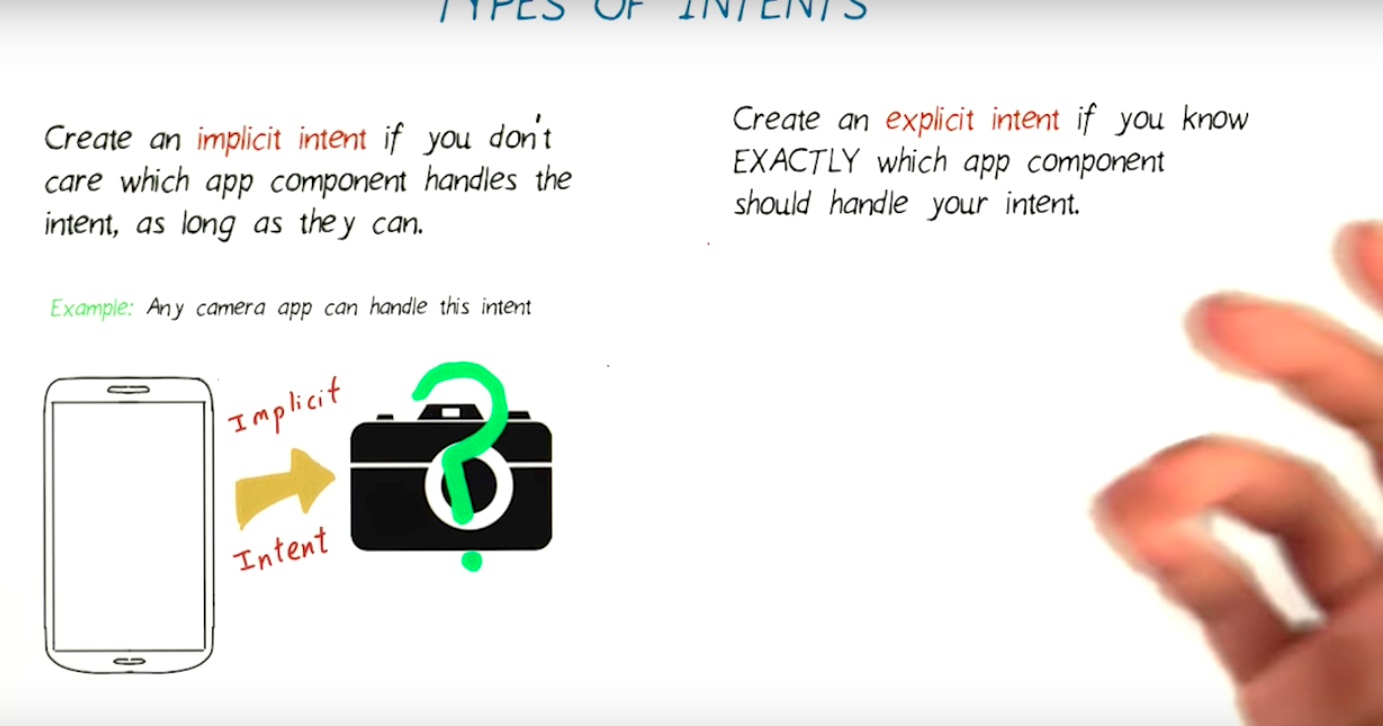 TYPES OF INTENTS
Create an implicit intent if you don't
care which app component handles the
intent, as long as they can.
Example: Any camera app can handle this intent
Implicit
Intent
Create an explicit intent if you know
EXACTLY which app component
should handle your intent.